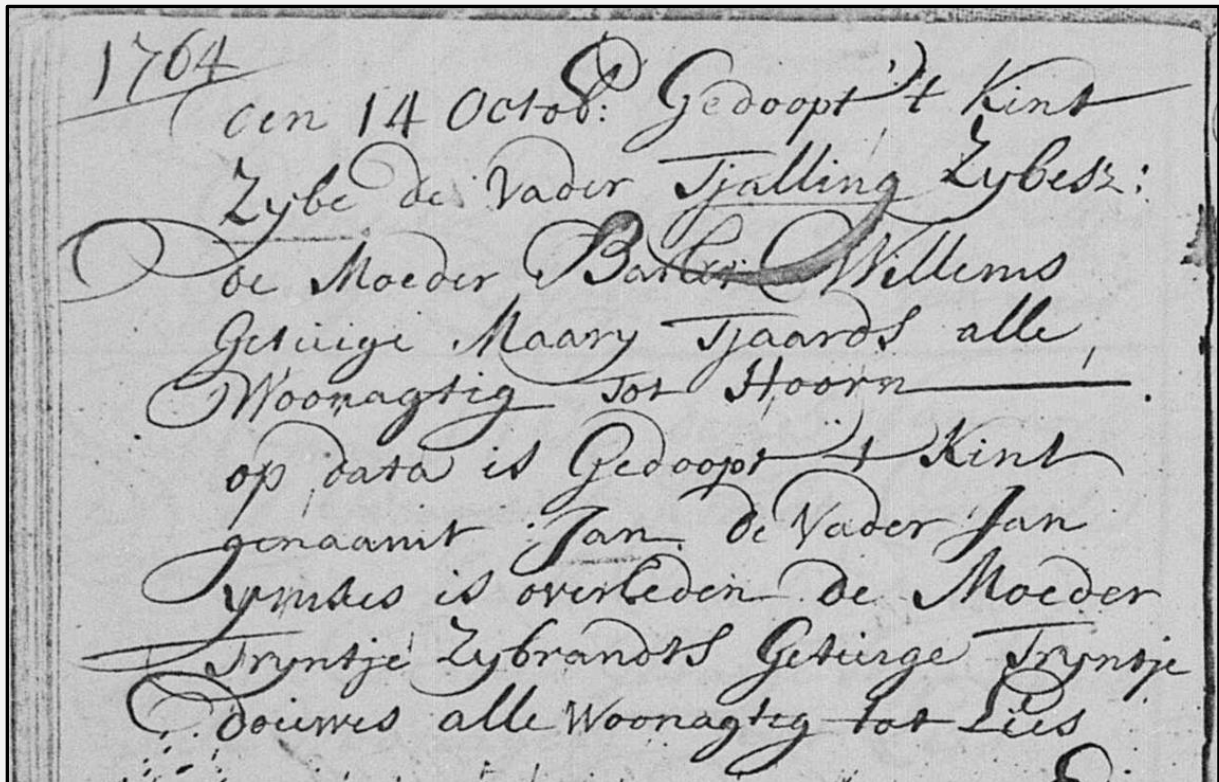 1764
den 14 Octob: Gedoopt 't Kint
Zybe de Vader Tjalling Zybesz:
de Moeder Willems
Getuige Maary Tjaards alle,
Woonagtig Tot Hoorn
op data is Gedoopt 't Kint
genaamt Jan de Vader Jan
is overleden de Moeder
Tryntje Zybrandts Getuige Tryntje
douwes alle Woonagtig tot Lies